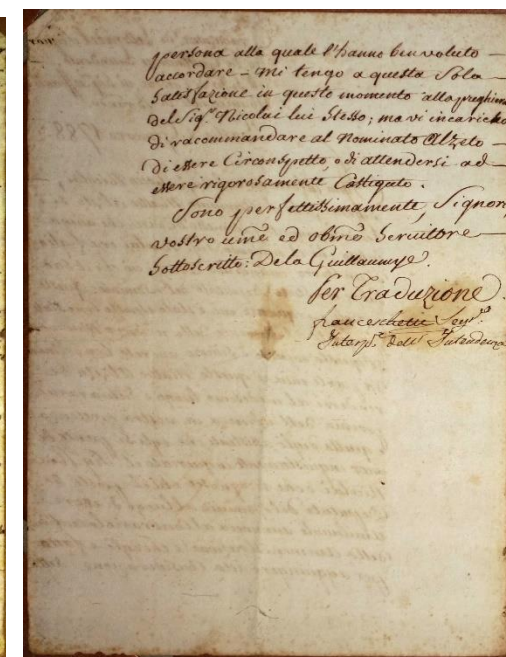 persona alla quale l'hanno ben voluto
accordare - mi tengo a questa Sola
Satisfazione in questo momento alla preghiera
del Sig.r Nicolai lui stesso; ma vi incarichо
di raccommandare al Nominato Alzeto
di essere Circonspetto, o di attendersi ad
essere rigorosamente Castigato.
Sono perfettissimamente, Signore,
vostro ume ed obmo Servitore
Sottoscritto: De la Guillaumye.
Per Traduzione.
franceschetti Seg.rio
Interp.e dell' Intendenza